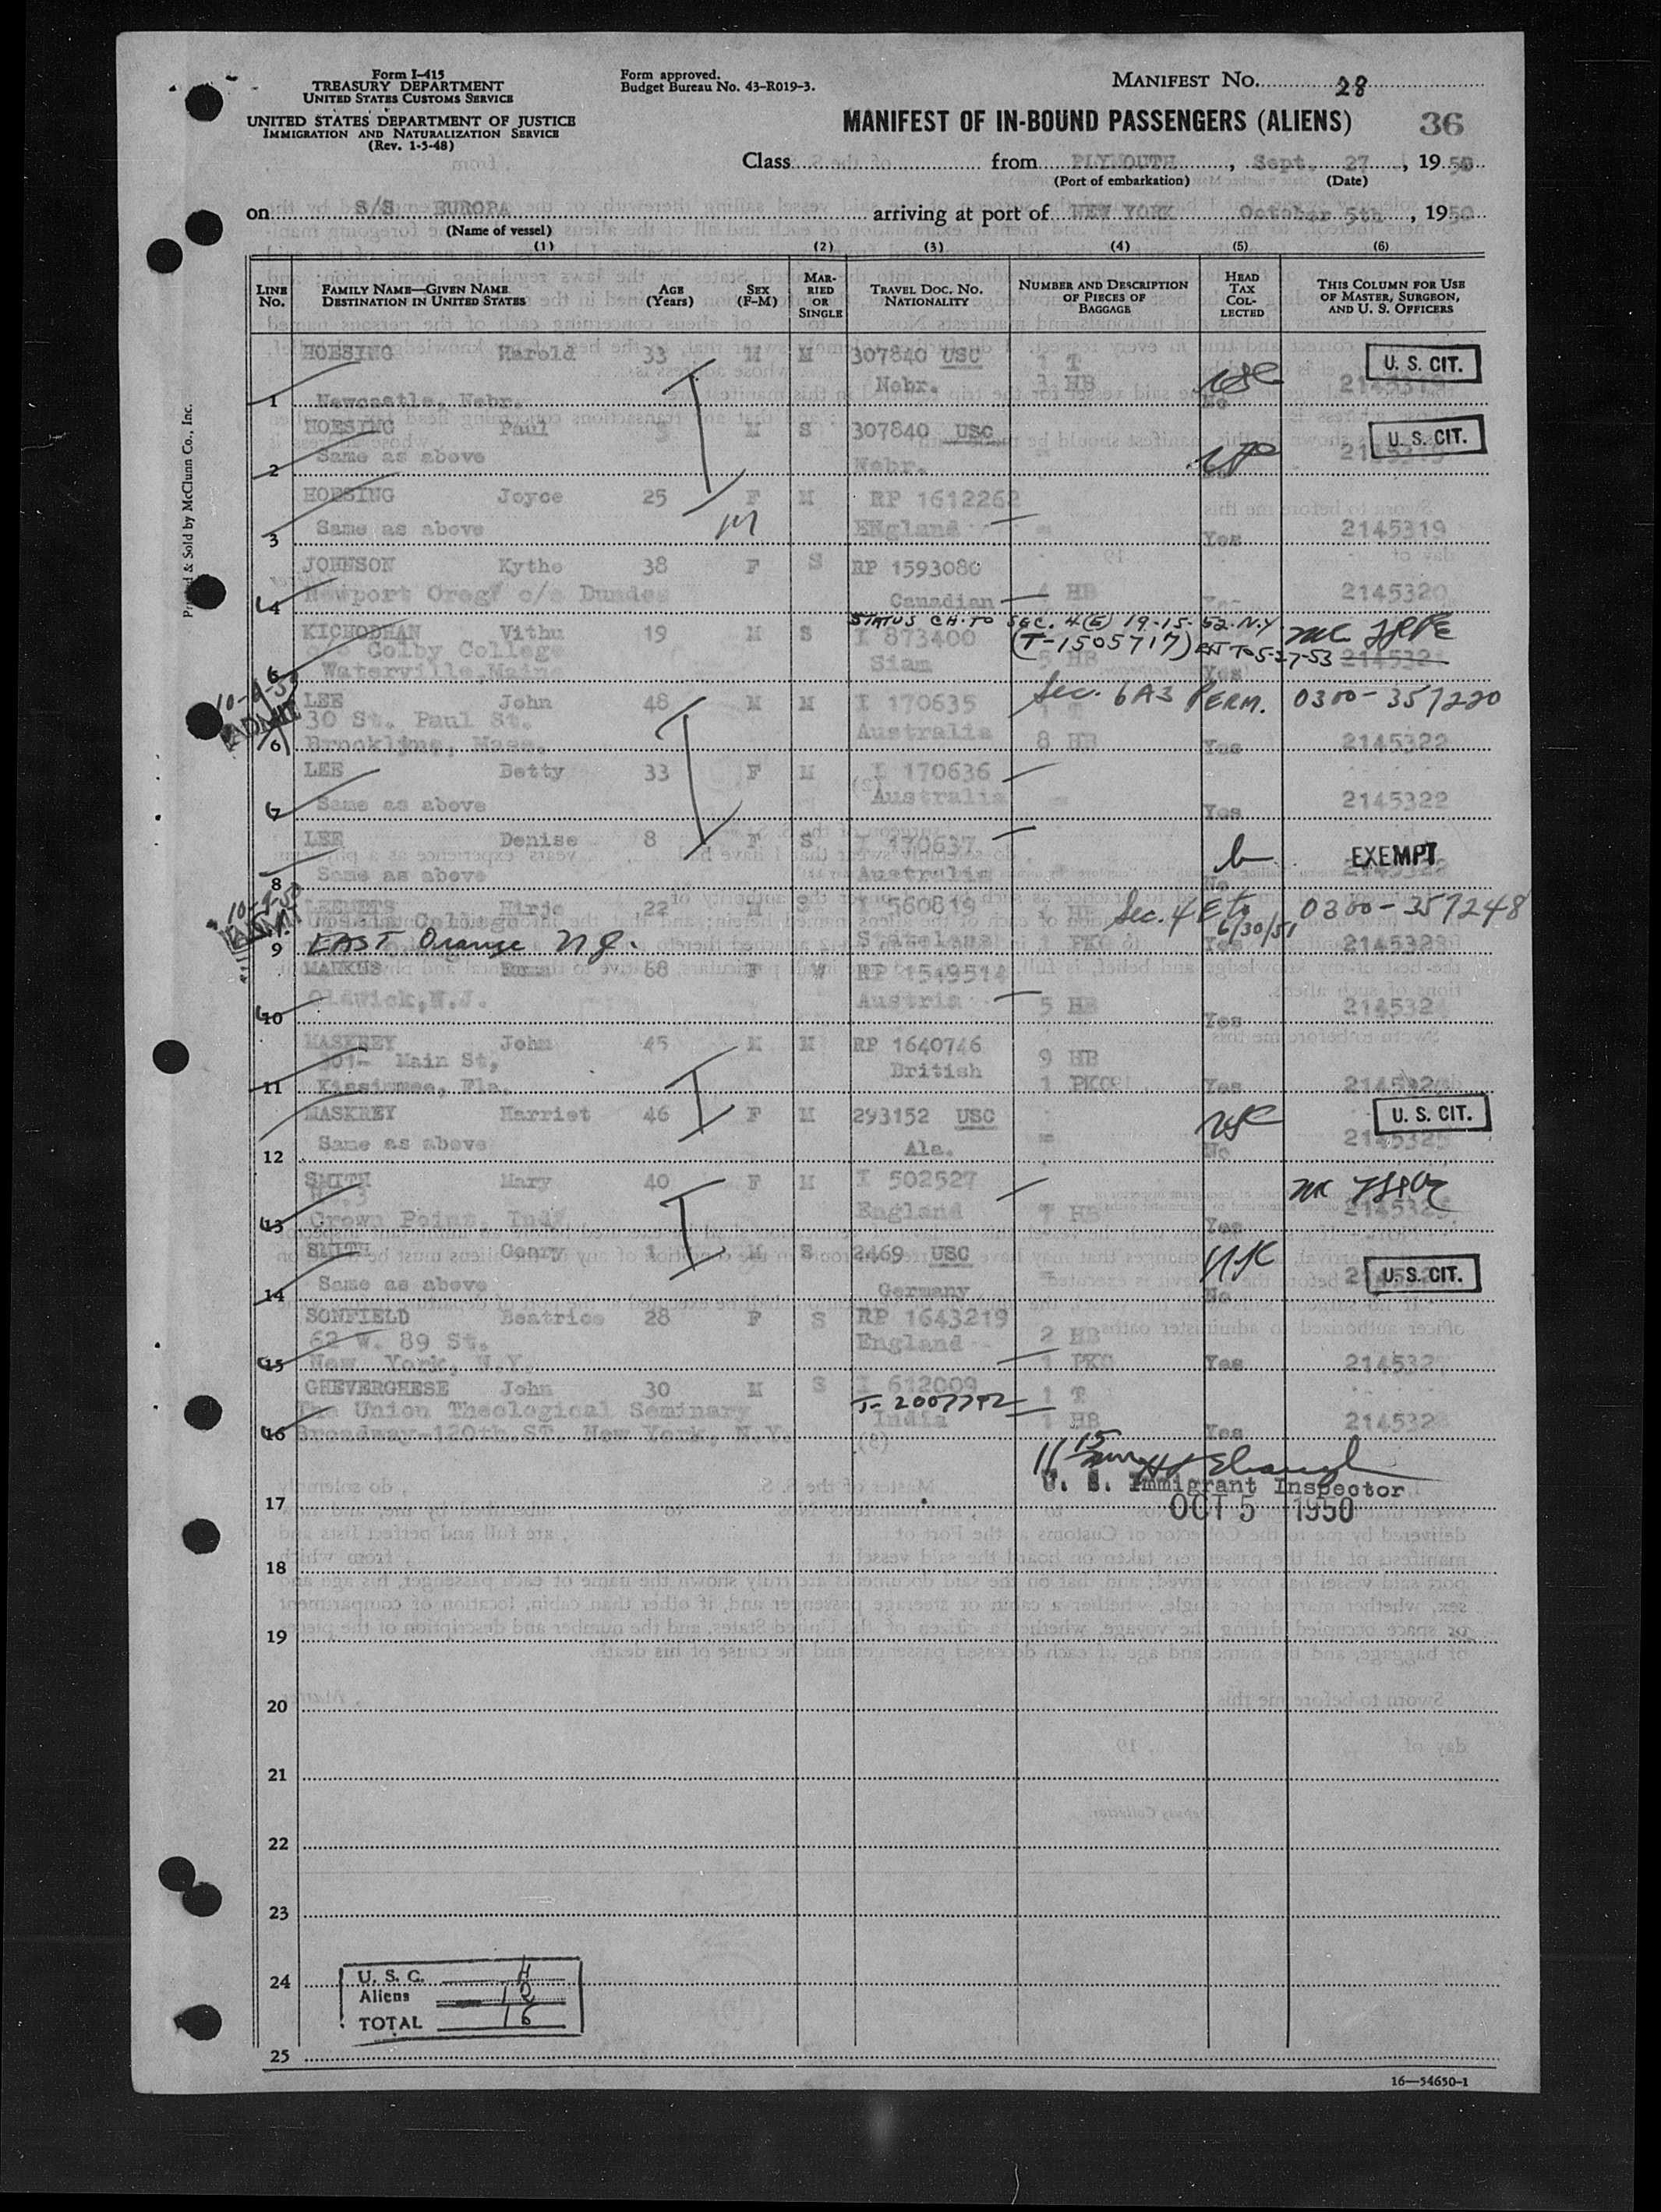 Form I-415
TREASURY DEPARTMENT
UNITED STATES CUSTOMS SERVICE
UNITED STATES DEPARTMENT OF JUSTICE
IMMIGRATION AND NATURALIZATION SERVICE
(Rev. 1-5-48)
Form approved.
Budget Bureau No. 43-R019-3.
MANIFEST NO. 28
MANIFEST OF IN-BOUND PASSENGERS (ALIENS) 36
Class from PLYMOUTH, Sept. 27, 1950
(Port of embarkation) (Date)
on S/S EUROPA arriving at port of NEW YORK October 5th, 1950
(Name of vessel)
(1) (2) (3) (4) (5) (6)
LINE NO. FAMILY NAME—GIVEN NAME DESTINATION IN UNITED STATES AGE (Years) SEX (F-M) MARRIED OR SINGLE TRAVEL DOC. NO. NATIONALITY NUMBER AND DESCRIPTION OF PIECES OF BAGGAGE HEAD TAX COLLECTED THIS COLUMN FOR USE OF MASTER, SURGEON, AND U. S. OFFICERS
HOESING Harold 33 M M 307840 USC 1 T U. S. CIT.
Nebr. 3 HB usc 2145319
1 Newcastle, Nebr. No
HOESING Paul 3 M S 307840 USC U. S. CIT.
Same as above 2145319
2 Nebr.
HOESING Joyce 25 F M RP 1612262
3 Same as above England Yes 2145319
JOHNSON Kythe 38 F S RP 1593080
4 Newport Oreg/ c/o Dundas Canadian 4 HB Yes 2145320
STATUS CH. TO SEC. 4(E) 19-15-52. N.Y.
KICHODHAN Vithu 19 M S I 873400 (T-1505717) EXT TO 5-27-53
c/o Colby College
Waterville, Maine Siam 5 HB Yes
10-9-50 ADMIT
LEE John 48 M M I 170635 Sec. 6A3 PERM. 0300-357220
30 St. Paul St. 1 T
6 Brookline, Mass. Australia 8 HB Yes 2145322
LEE Betty 33 F M I 170636
7 Same as above Australia Yes 2145322
LEE Denise 8 F S I 170637
8 Same as above Australia No EXEMPT
10-9-50 ADMIT
Hirjo 22 M S I 560819 Sec. 4E to 6/30/51 0300-357248
Upsala College
9 EAST Orange N.J. Stateless 1 PKG Yes 2145323
MARKUS Emma 68 F W RP 1549514
10 Oldwick, N.J. Austria 5 HB Yes 2145324
MASKREY John 45 M M RP 1640746 9 HB
301- Main St,
11 Kissimmee, Fla. British 1 PKG Yes 2145325
MASKREY Harriet 46 F M 293152 USC usc U. S. CIT.
12 Same as above Ala. No 2145325
SMITH Mary 40 F M I 502527
Rt. 3
13 Crown Point, Ind. England 7 HB Yes
SMITH Geary 1 M S 2469 USC U. S. CIT.
14 Same as above Germany No
SONFIELD Beatrice 28 F S RP 1643219
62 W. 89 St. England 2 HB
15 New York, N.Y. 1 PKG Yes 214532
GHEVERGHESE John 30 M S I 612009 1 T
T-2007792
The Union Theological Seminary India 1 HB
16 Broadway-120th.ST. New York, N.Y. Yes 214532
11 15
U. S. Immigrant Inspector
17 OCT 5 1950
18
19
20
21
22
23
24
U. S. C. 4
Aliens 12
TOTAL 16
25
16—54650-1
Printed & Sold by McClunn Co., Inc.